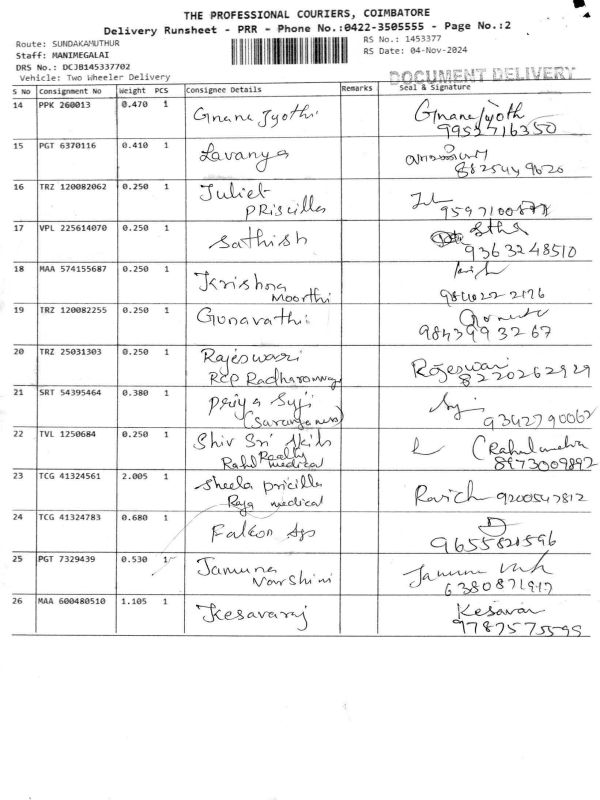 THE PROFESSIONAL COURIERS, COIMBATORE
Delivery Runsheet - PRR - Phone No.:0422-3505555 - Page No.:2
Route: SUNDAKAMUTHUR
RS No.: 1453377
Staff: MANIMEGALAI
RS Date: 04-Nov-2024
DRS No.: DCJB145337702
Vehicle: Two Wheeler Delivery
DOCUMENT DELIVERY
S No Consignment No Weight PCS Consignee Details Remarks Seal & Signature
14 PPK 260013 0.470 1 Gnana Jyothi Gnana Jyoth
9952716350
15 PGT 6370116 0.410 1 Lavanya
8825449620
16 TRZ 120082062 0.250 1 Juliet
Priscilla
17 VPL 225614070 0.250 1 Sathish
9363248510
18 MAA 574155687 0.250 1 Krishna
Moorthi
19 TRZ 120082255 0.250 1 Gunavathi
9843993267
20 TRZ 25031303 0.250 1 Rajeswari Rajeswari
8220262929
21 SRT 54395464 0.380 1 Priya Syji
9342790062
22 TVL 1250684 0.250 1 Shiv Sri
Really
medical
8973009892
23 TCG 41324561 2.005 1 Sheela pricilla
Raja medical
9200547812
24 TCG 41324783 0.680 1 Falcon
9655821596
25 PGT 7329439 0.530 1 Jamuna
Varshini
6380871917
26 MAA 600480510 1.105 1 Kesavaraj Kesavan
9787575595